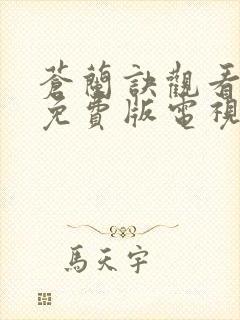 蒼蘭訣觀看
免費版電視
馬天宇